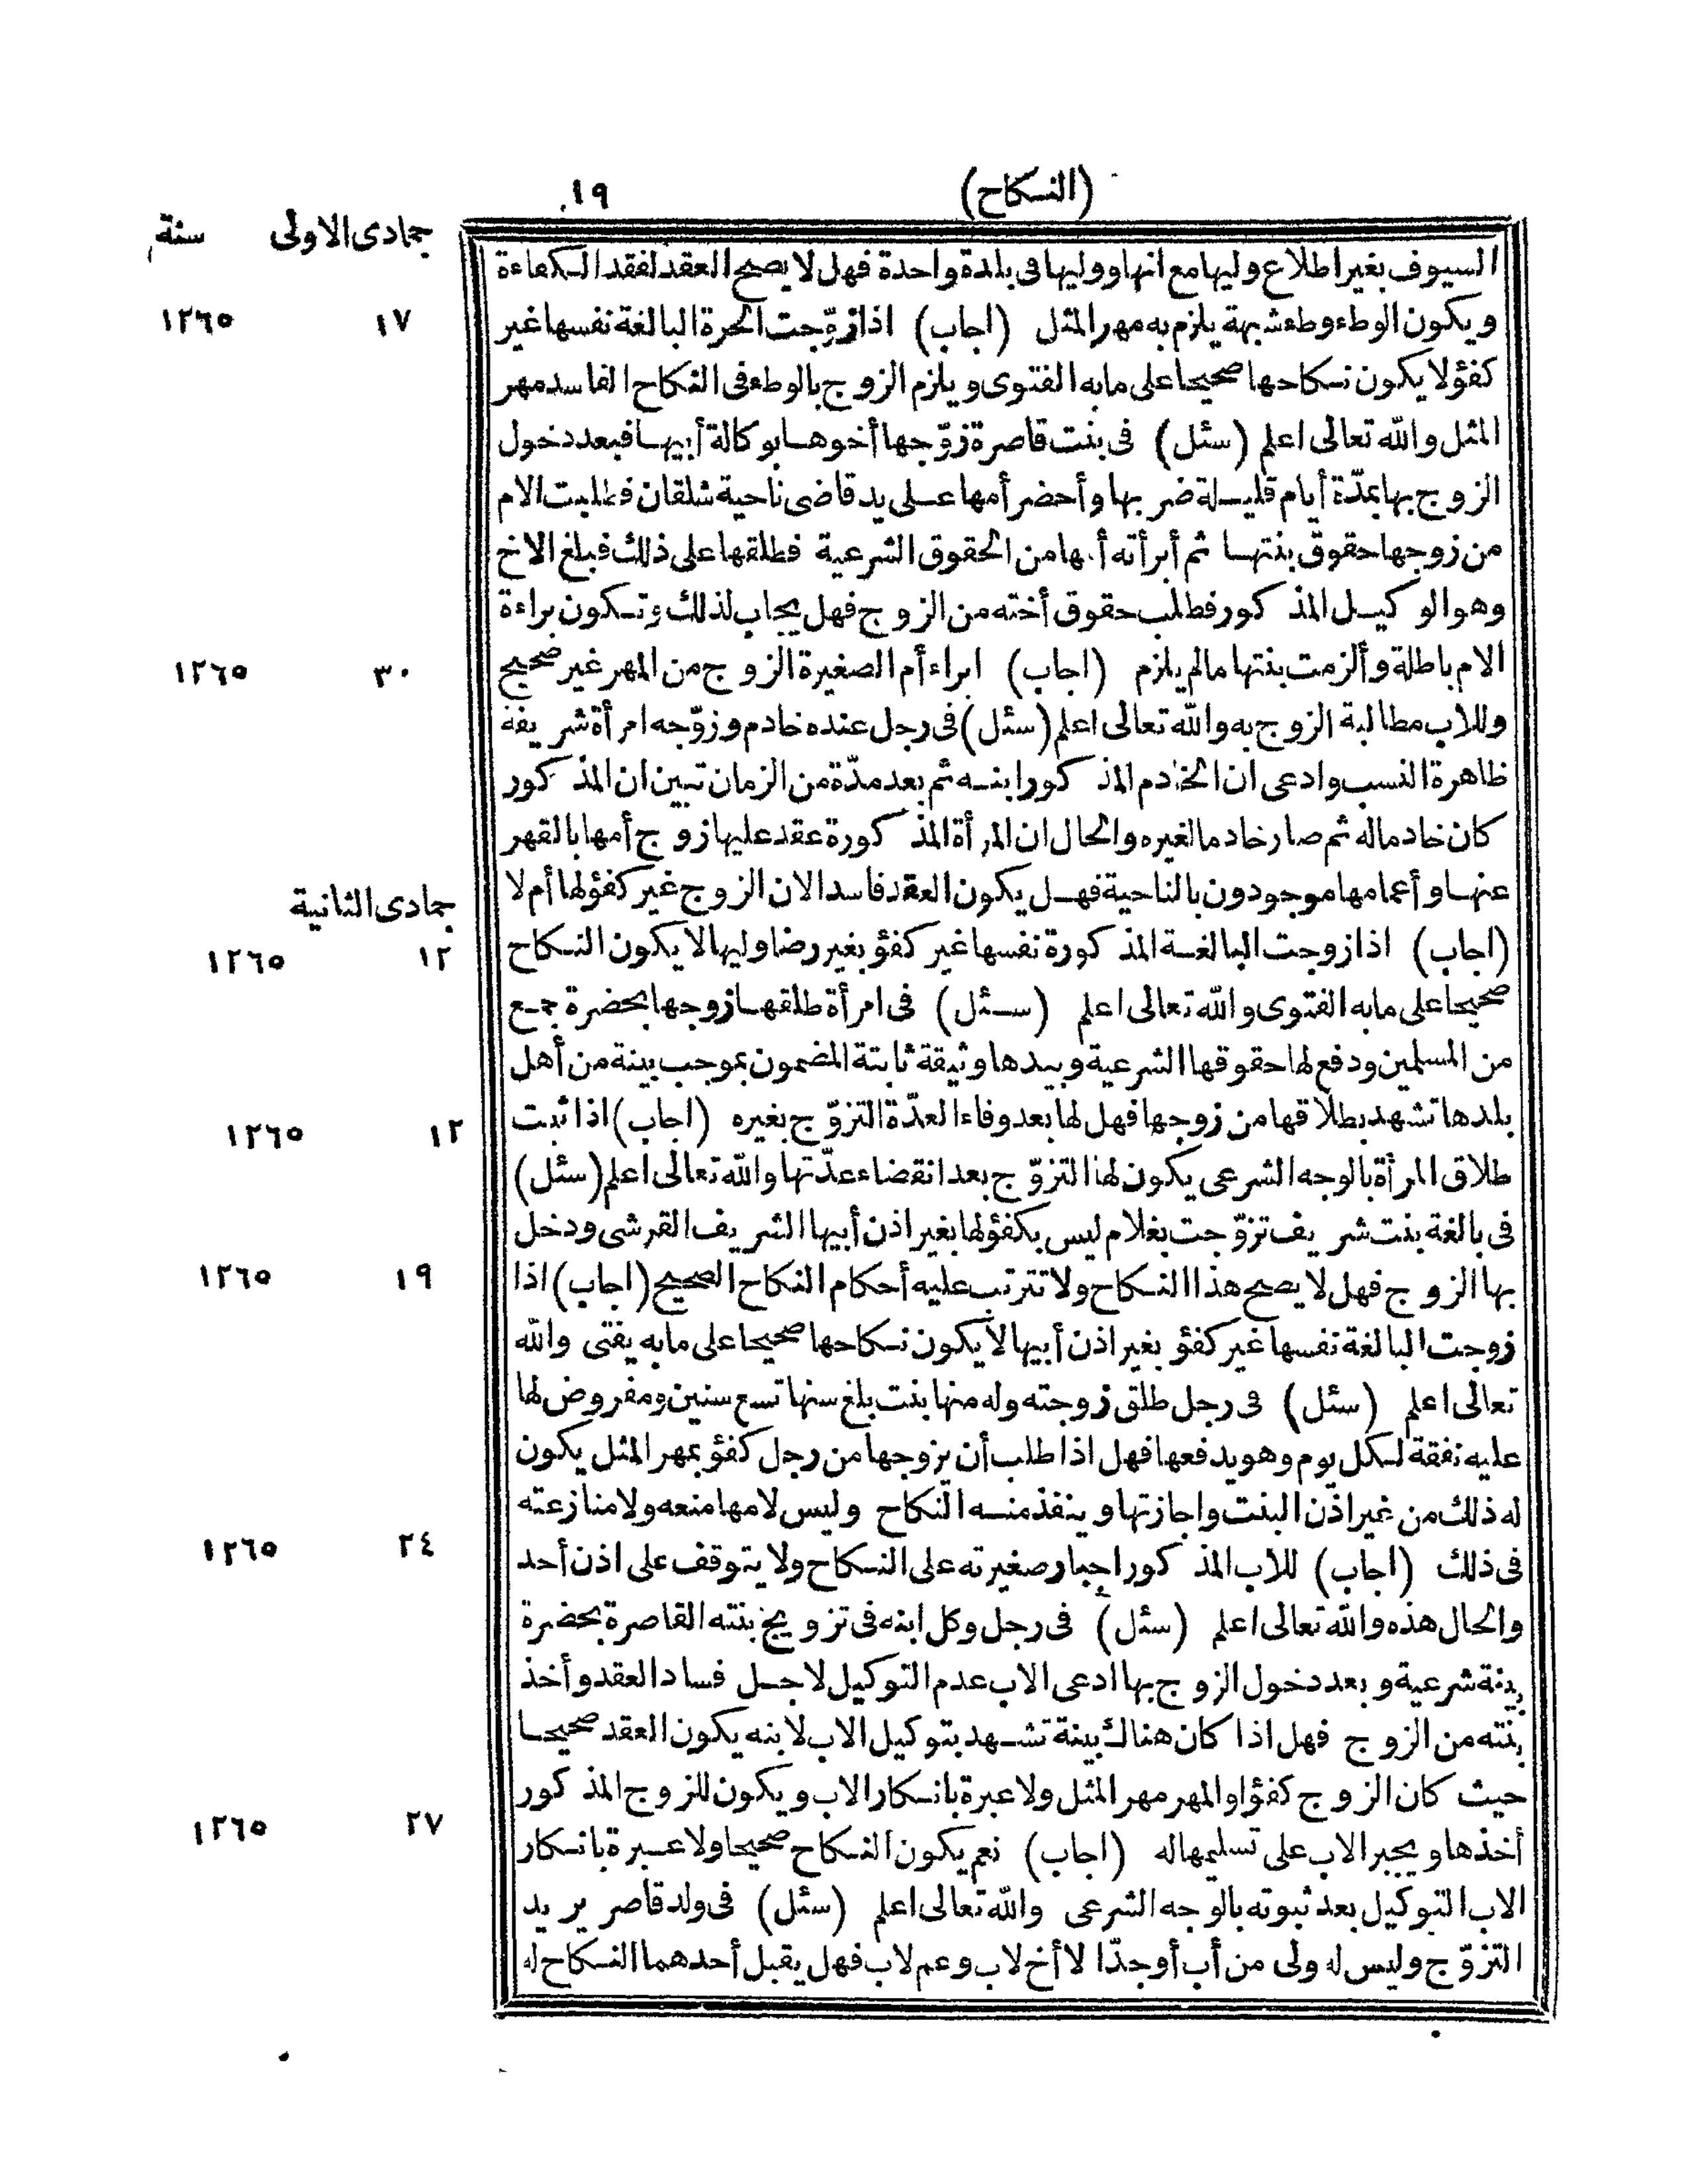 (النكاح) ١٩
جمادى الاولى سنة
السيوف بغير اطلاع وليها مع انها ووليها فى بلدة واحدة فهل لا يصح العقد لفقد الكفاءة
ويكون الوطء وطء شبهة يلزم به مهر المثل (اجاب) اذا زوّجت الحرة البالغة نفسها غير
١٧ ١٢٦٥
كفؤ لا يكون نكاحها صحيحا على ما به الفتوى ويلزم الزوج بالوطء فى النكاح الفاسد مهر
المثل والله تعالى اعلم (سئل) فى بنت قاصرة زوّجها أخوها بوكالة أبيها فبعد دخول
الزوج بها بمدّة أيام قليلة ضربها وأحضر أمها على يد قاضى ناحية شلقان فطلبت الام
من زوجها حقوق بنتها ثم أبرأته أمها من الحقوق الشرعية فطلقها على ذلك فبلغ الاخ
وهو الوكيل المذكور فطلب حقوق أخته من الزوج فهل يجاب لذلك وتكون براءة
الام باطلة وألزمت بنتها مالم يلزم (اجاب) ابراء أم الصغيرة الزوج من المهر غير صحيح
٣٠ ١٢٦٥
وللاب مطالبة الزوج به والله تعالى اعلم (سئل) فى رجل عنده خادم وزوّجه امرأة شريفة
ظاهرة النسب وادعى ان الخادم المذكور ابنه ثم بعد مدّة من الزمان تبين ان المذكور
كان خادما له ثم صار خادما لغيره والحال ان المرأة المذكورة عقد عليها زوج أمها بالقهر
عنها وأعمامها موجودون بالناحية فهل يكون العقد فاسدا لان الزوج غير كفؤ لها أم لا
جمادى الثانية
(اجاب) اذا زوجت البالغة المذكورة نفسها غير كفؤ بغير رضا وليها لا يكون النكاح
١٢ ١٢٦٥
صحيحا على ما به الفتوى والله تعالى اعلم (سئل) فى امرأة طلقها زوجها بحضرة جمع
من المسلمين ودفع لها حقوقها الشرعية وبيدها وثيقة ثابتة المضمون بموجب بينة من أهل
بلدها تشهد بطلاقها من زوجها فهل لها بعد وفاء العدّة التزوّج بغيره (اجاب) اذا ثبت
١٢ ١٢٦٥
طلاق المرأة بالوجه الشرعى يكون لها التزوّج بعد انقضاء عدّتها والله تعالى اعلم (سئل)
فى بالغة بنت شريف تزوّجت بغلام ليس بكفؤ لها بغير اذن أبيها الشريف القرشى ودخل
بها الزوج فهل لا يصح هذا النكاح ولا تترتب عليه أحكام النكاح الصحيح (اجاب) اذا
١٩ ١٢٦٥
زوجت البالغة نفسها غير كفؤ بغير اذن أبيها لا يكون نكاحها صحيحا على ما به يفتى والله
تعالى اعلم (سئل) فى رجل طلق زوجته وله منها بنت بلغ سنها تسع سنين ومفروض لها
عليه نفقة لكل يوم وهو يدفعها فهل اذا طلب أن يزوجها من رجل كفؤ بمهر المثل يكون
له ذلك من غير اذن البنت واجازتها وينفذ منه النكاح وليس لامها منعه ولا منازعته
فى ذلك (اجاب) للاب المذكور اجبار صغيرته على النكاح ولا يتوقف على اذن أحد
٢٤ ١٢٦٥
والحال هذه والله تعالى اعلم (سئل) فى رجل وكل ابنه فى تزويج بنته القاصرة بحضرة
بينة شرعية وبعد دخول الزوج بها ادعى الاب عدم التوكيل لاجل فساد العقد وأخذ
بنته من الزوج فهل اذا كان هناك بينة تشهد بتوكيل الاب لابنه يكون العقد صحيحا
حيث كان الزوج كفؤا والمهر مهر المثل ولا عبرة بانكار الاب ويكون للزوج المذكور
أخذها ويجبر الاب على تسليمها له (اجاب) نعم يكون النكاح صحيحا ولا عبرة بانكار
٢٧ ١٢٦٥
الاب التوكيل بعد ثبوته بالوجه الشرعى والله تعالى اعلم (سئل) فى ولد قاصر يريد
التزوّج وليس له ولى من أب أو جدّ الا أخ لاب وعم لاب فهل يقبل أحدهما النكاح له